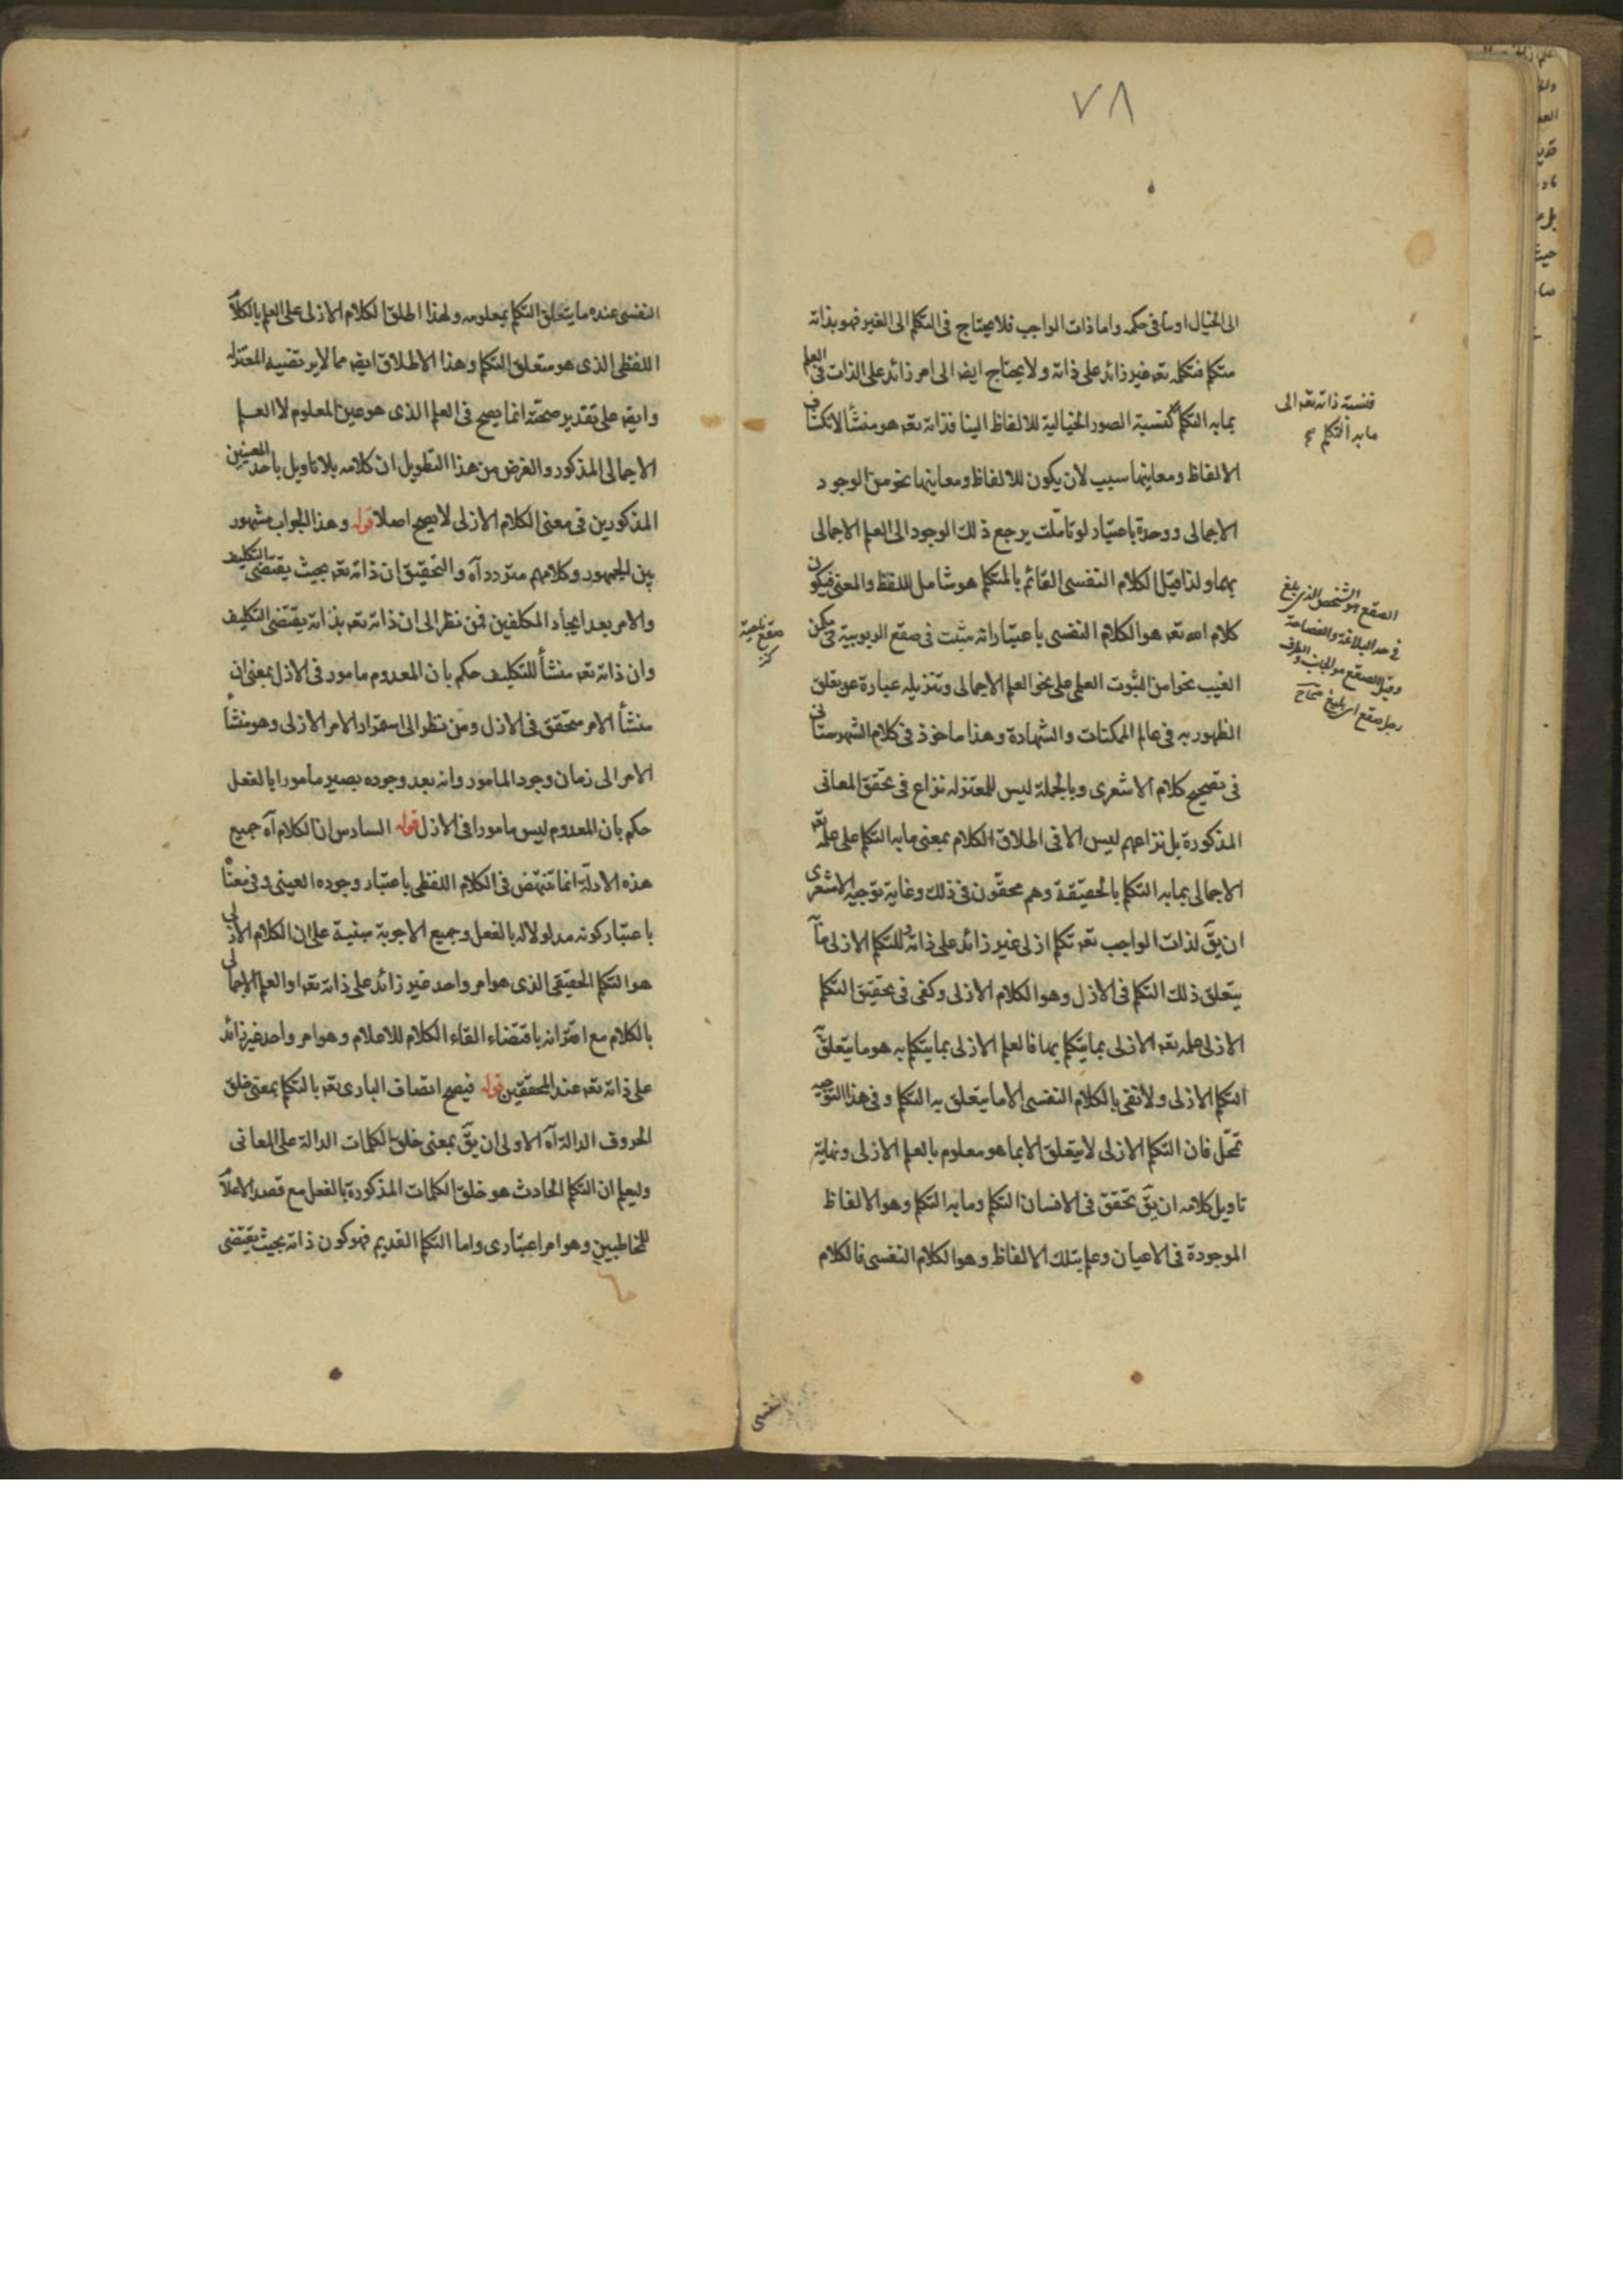 ٧٨
الى الخيال او ما فى حكمه واما ذات الواجب فلا يحتاج فى التكلم الى الغير فهو بذاته
متكلم فتكلمه تعه غير زائد على ذاته ولا يحتاج ايضا الى امر زائد على الذات فى العلم
بما به التكلم كنسبة الصور الخيالية للالفاظ الينا فذاته تعه هو منشأ لانكشاف
فنسبة ذاته تعه الى
ما به التكلم صح
الالفاظ ومعانيها سبب لان يكون للالفاظ ومعانيها نحو من الوجود
الاجمالى ووحدة باعتبار لو تاملت يرجع ذلك الوجود الى العلم الاجمالى
بهما ولذا قيل الكلام النفسى القائم بالمتكلم هو شامل للفظ والمعنى فيكون
كلام الله تعه هو الكلام النفسى باعتبار انه مثبت فى صقع الربوبية فى مكمن
الصقع هو الشخص الذى بلغ
فى حد البلاغة والفصاحة
وقيل الصقع هو الجانب والطرف
رجل صقع اى بليغ صحاح
صقع ناحية
كنز
الغيب نحوا من الثبوت العلمى على نحو العلم الاجمالى وتنزيله عبارة عن تعلق
الظهور به فى عالم الممكنات والشهادة وهذا ماخوذ فى كلام الشهرستانى
فى تصحيح كلام الاشعرى وبالجملة ليس للمعتزله نزاع فى تحقق المعانى
المذكورة بل نزاعهم ليس الا فى اطلاق الكلام بمعنى ما به التكلم على علمه تعه
الاجمالى بما به التكلم بالحقيقة وهم محقون فى ذلك وغاية توجيه الاشعرى
ان يق لذات الواجب تعه تكلم ازلى غير زائد على ذاته وللتكلم الازلى ما
يتعلق ذلك التكلم فى الازل وهو الكلام الازلى وكفى فى تحقيق التكلم
الازلى علمه تعه الازلى بما يتكلم بها فالعلم الازلى بما يتكلم به هو ما يتعلق
التكلم الازلى ولا نفى بالكلام النفسى الا ما يتعلق به التكلم وفى هذا التوجيه
تمحل فان التكلم الازلى لا يتعلق الا بما هو معلوم بالعلم الازلى ونهاية
تاويل كلامه ان يق تحقق فى الانسان التكلم وما به التكلم وهو الالفاظ
الموجودة فى الاعيان وعلم بتلك الالفاظ وهو الكلام النفسى فالكلام
النفسى
النفسى عنده ما يتعلق التكلم بمعلومه ولهذا اطلق الكلام الازلى على العلم بالكلام
اللفظى الذى هو متعلق التكلم وهذا الاطلاق ايضه مما لا يرتضيه المعتزله
وايضه على تقدير صحته انما يصح فى العلم الذى هو عين المعلوم لا العلم
الاجمالى المذكور والغرض من هذا التطويل ان كلامه بلا تاويل باحد المعنيين
المذكورين فى معنى الكلام الازلى لا يصح اصلا قوله وهذا الجواب مشهور
بين الجمهور وكلامهم متردد آه والتحقيق ان ذاته تعه بحيث يقتضى التكليف
والامر بعد ايجاد المكلفين فمن نظر الى ان ذاته تعه بذاته يقتضى التكليف
وان ذاته تعه منشأ للتكليف حكم بان المعدوم مامور فى الازل بمعنى ان
منشأ الامر متحقق فى الازل ومن نظر الى استمرار الامر الازلى وهو منشأ
الامر الى زمان وجود المامور وانه بعد وجوده يصير مامورا بالفعل
حكم بان المعدوم ليس مامورا فى الازل قوله السادس ان الكلام آه جميع
هذه الادلة انما تنتهض فى الكلام اللفظى باعتبار وجوده العينى وفى معناه
باعتبار كونه مدلولا له بالفعل وجميع الاجوبة مبنية على ان الكلام الازلى
هو التكلم الحقيقى الذى هو امر واحد غير زائد على ذاته تعه او العلم الاجمالى
بالكلام مع اقترانه باقتضاء القاء الكلام للاعلام وهو امر واحد غير زائد
على ذاته تعه عند المحققين قوله فيصح اتصاف البارى تعه بالتكلم بمعنى خلق
الحروف الدالة آه الاولى ان يق بمعنى خلق الكلمات الدالة على المعانى
وليعلم ان التكلم الحادث هو خلق الكلمات المذكورة بالفعل مع قصد الاعلام
للمخاطبين وهو امر اعتبارى واما التكلم القديم فهو كون ذاته بحيث يقتضى